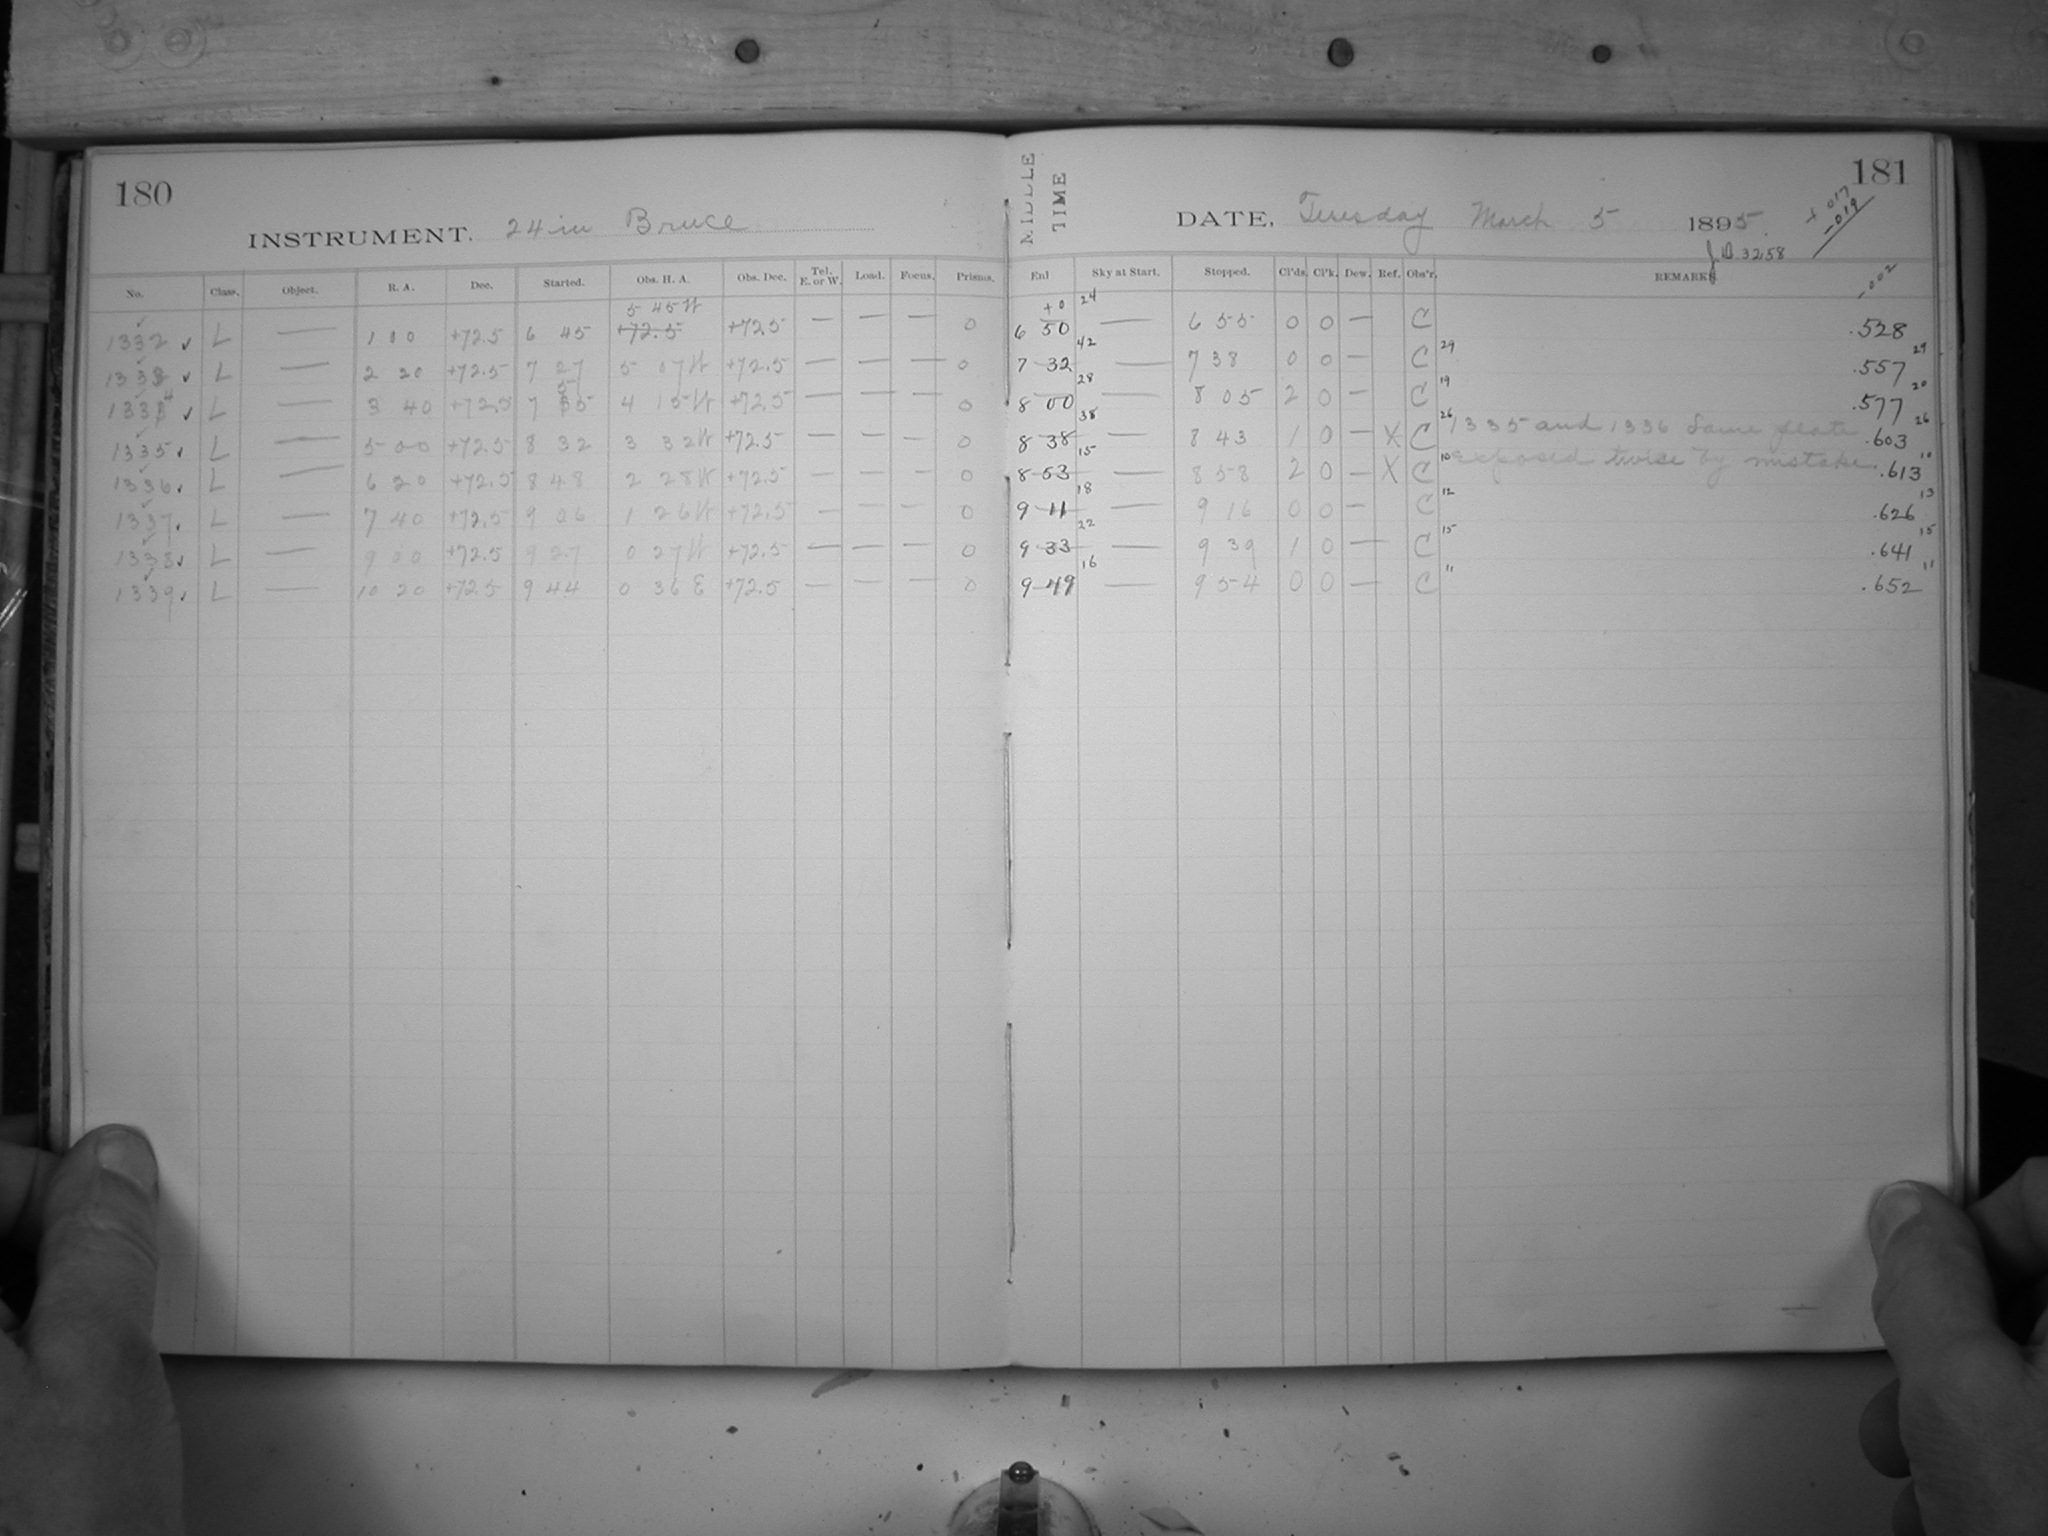 180
INSTRUMENT. 24 in Bruce
MIDDLE TIME
DATE, Tuesday March 5 1895.
181
+017
-019
-002
J.D. 3258
No. Class. Object. R. A. Dec. Started. Obs. H. A. Obs. Dec. Tel. E. or W. Load. Focus. Prisms. Enl Sky at Start. Stopped. Cl'ds. Cl'k. Dew. Ref. Obs'r. REMARKS
5 45 W +0 24
1332 ✓ L — 1 00 +72.5 6 45 +72.5 +72.5 — — — 0 6 50 — 6 55 0 0 — C .528
42 29 29
1333 ✓ L — 2 20 +72.5 7 27 5 07 W +72.5 — — — 0 7 32 — 7 38 0 0 — C .557
28 19 20
1334 ✓ L — 3 40 +72.5 7 55 4 15 W +72.5 — — — 0 8 00 — 8 05 2 0 — C .577
38 26 26
1335 ✓ L — 5 00 +72.5 8 32 3 32 W +72.5 — — — 0 8 38 — 8 43 1 0 — X C 1335 and 1336 Same plate .603
15 10 10
1336 ✓ L — 6 20 +72.5 8 48 2 28 W +72.5 — — — 0 8 53 — 8 58 2 0 — X C exposed twice by mistake .613
18 12 13
1337 ✓ L — 7 40 +72.5 9 06 1 26 W +72.5 — — — 0 9 11 — 9 16 0 0 — C .626
22 15 15
1338 ✓ L — 9 00 +72.5 9 27 0 27 W +72.5 — — — 0 9 33 — 9 39 1 0 — C .641
16 11 11
1339 ✓ L — 10 20 +72.5 9 44 0 36 E +72.5 — — — 0 9 49 — 9 54 0 0 — C .652